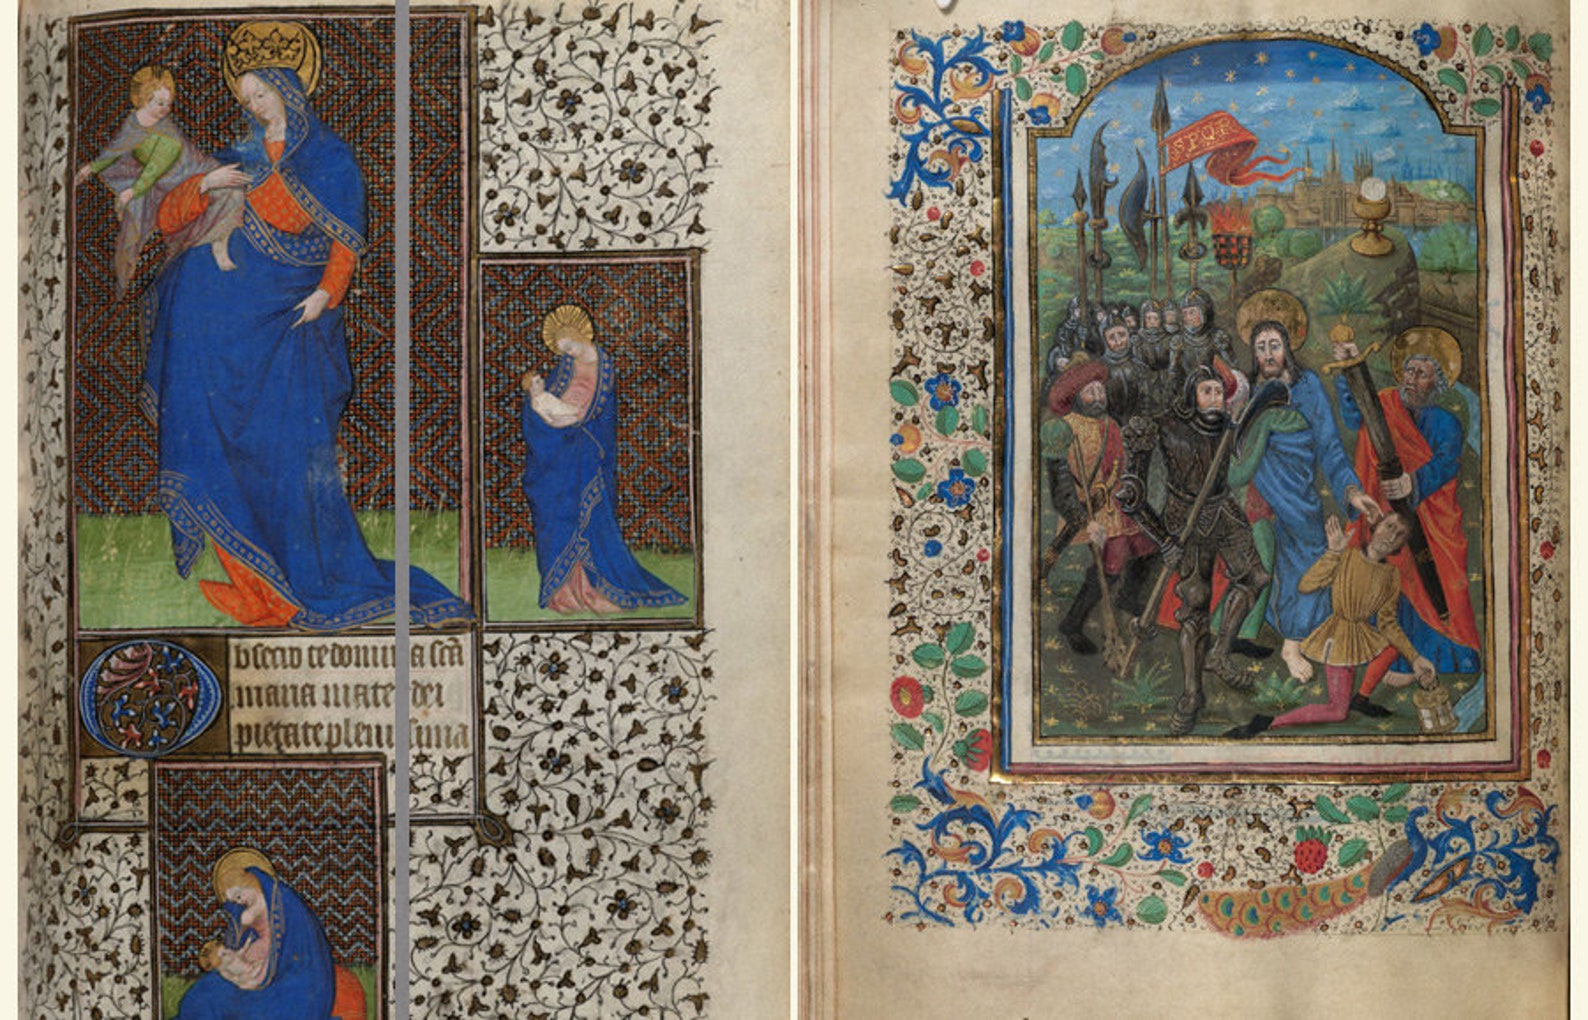 Obsecro te domina scā
maria mater dei
pietate plenissima
SPQR